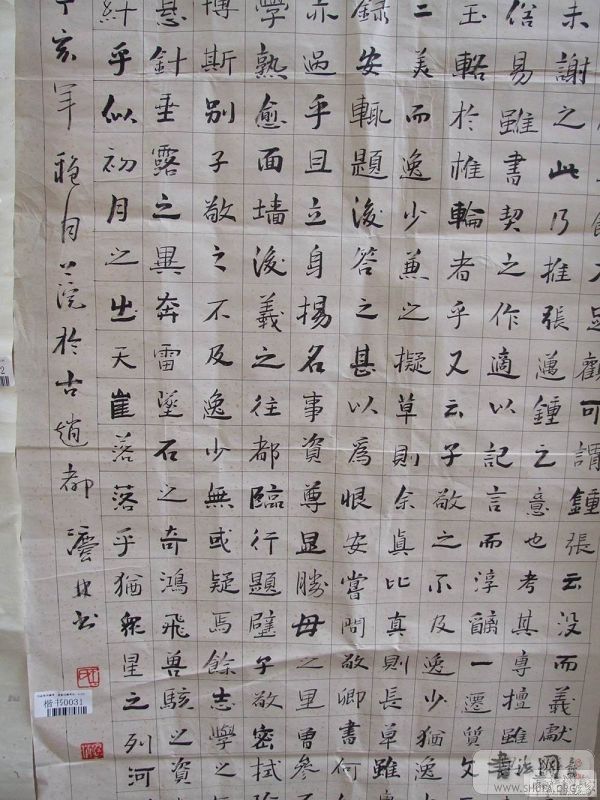 足觀可謂鍾張云没而羲獻
未謝之此乃推張邁鍾之意也考其專擅雖
俗易雖書契之作適以記言而淳醨一遷質文
玉輅於椎輪者乎又云子敬之不及逸少猶逸
二美而逸少兼之擬草則余真比真則長草雖專
録安輒題後答之甚以為恨安嘗問敬卿書何
亦過乎且立身揚名事資尊显勝母之里曾參
學熟愈面墙後義之往都臨行題壁子敬密拭
博斯别子敬之不及逸少無或疑焉餘志學之
懸針垂露之異奔雷墜石之奇鴻飛兽駭之資
纤乎似初月之出天崖落落乎猶衆星之列河
丁亥年穐月於古趙都
楷书0031